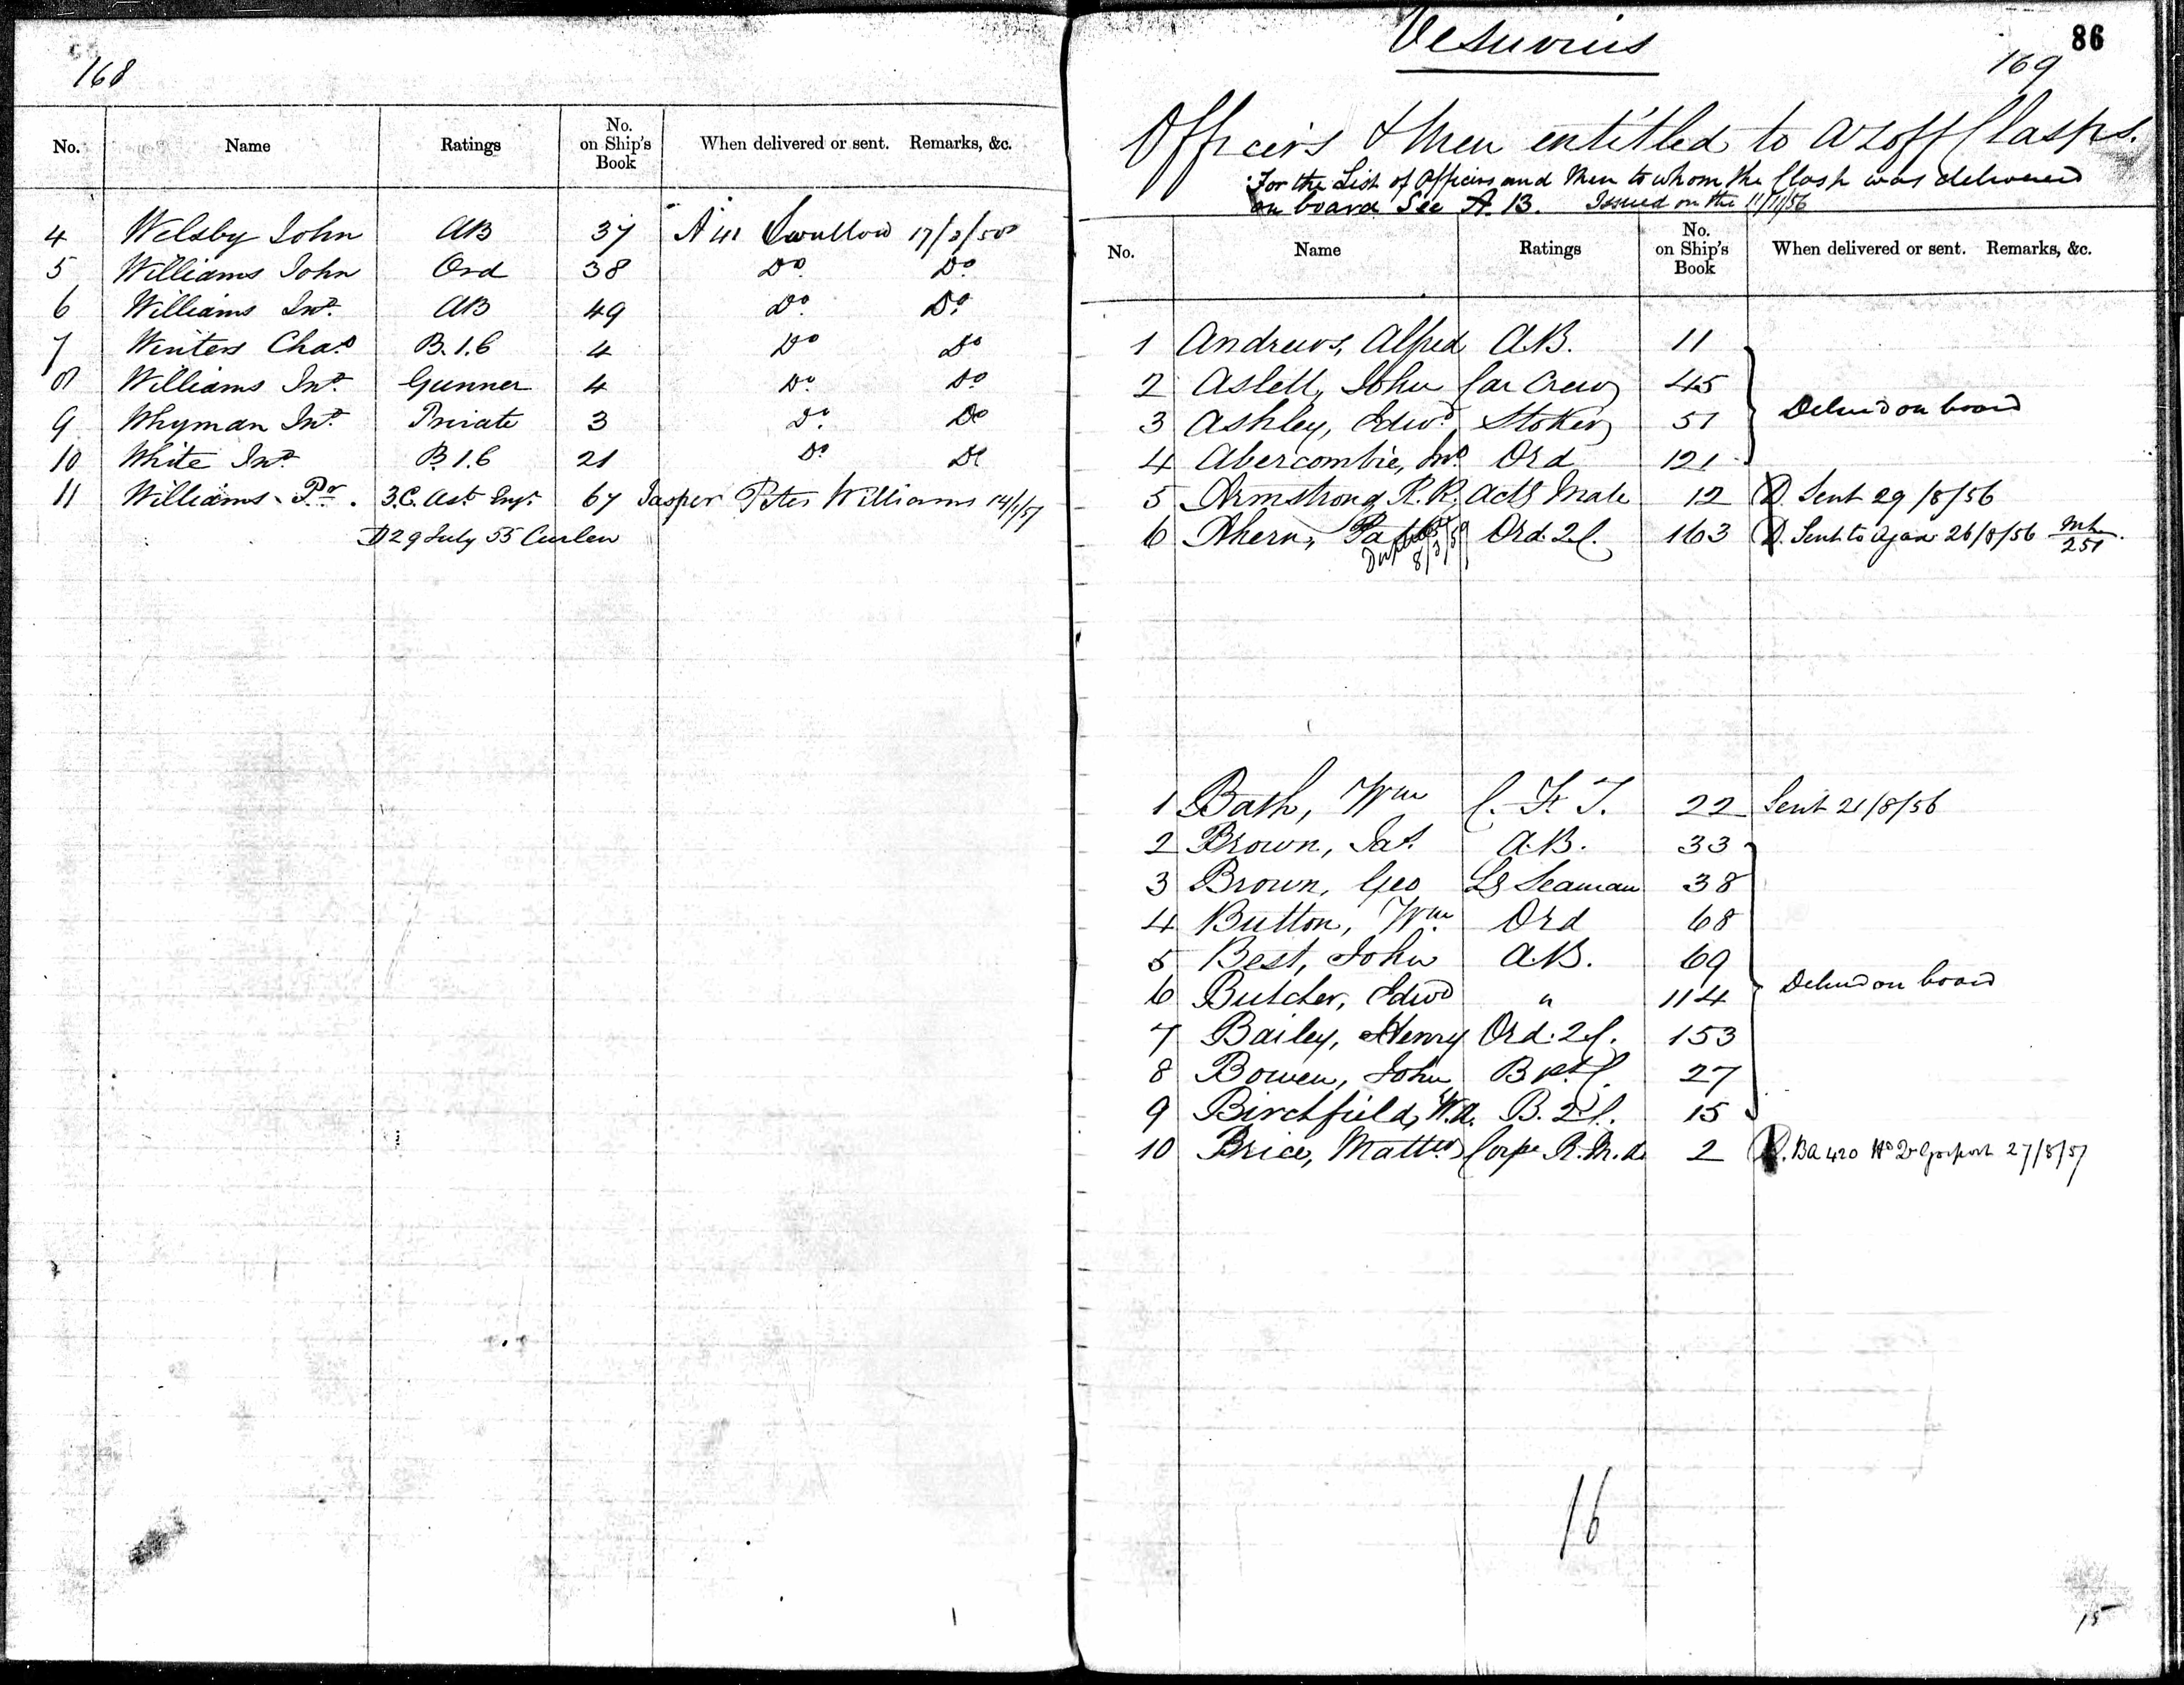 168
No. Name Ratings No. on Ship's Book When delivered or sent. Remarks, &c.
4 Welsby John AB 37 Swallow 17/3/58
5 Williams John Ord 38 Do. Do.
6 Williams Jno. AB 49 Do. Do.
7 Winters Chas B.1.C 4 Do Do
8 Williams Jno. Gunner 4 Do. Do
9 Whyman Jno. Private 3 Do. Do
10 White Jno. B.1.C 21 Do Do
11 Williams Pr. 3.C. Ast. Engr. 67 Jasper Peter Williams 14/1/57
D 29 July 55 Curlew
Vesuvius
86
169
Officers & Men entitled to Azoff Clasps.
For the List of Officers and Men to whom the Clasp was delivered
on board See A. 13. Issued on the 11/11/56
No. Name Ratings No. on Ship's Book When delivered or sent. Remarks, &c.
1 Andrews, Alfred A.B. 11
2 Aslett, John Car Crew 45
Delverd on board
3 Ashley, Edwd. Stoker 51
4 Abercombie, Jno. Ord 121
5 Armstrong R.R. Actg Mate 12 D. Sent 29/8/56
6 Ahern, Patk Ord. 2C. 163 D. Sent to Ajax 26/8/56
Duplicate 8/3/59
1 Bash, Wm C. F. T. 22 Sent 21/8/56
2 Brown, Jas. A.B. 33
3 Brown, Geo Lg Seaman 38
4 Button, Wm. Ord 68
5 Best, John A.B. 69
Delverd on board
6 Butcher, Edwd " 114
7 Bailey, Henry Ord. 2C. 153
8 Bowen, John B 1st C. 27
9 Birchfield, W.A. B. 2C. 15
10 Brice, Mattw Corpl R.M.A. 2 D. Ba 420 Gosport 27/8/57
16
15